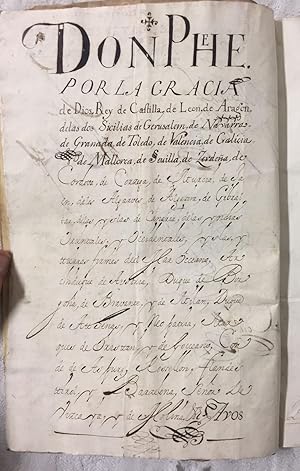 DON PHE.
POR LA GRACIA
de Dios, Rey de Castilla, de Leon, de Aragon,
de las dos Sicilias de Gerusalem, de Navarra
de Granada, de Toledo, de Valencia, de Galicia
de Mallorca, de Sevilla, de Zerdeña, de
Cordova, de Corzega, de Murcia, de Ja
en, de los Algarves de Algecira, de Gibral
tar, de las Yslas de Canaria, de las Yndias
Orientales, y Ocidentales, Yslas, y
tierra firme del Mar Oceano, Ar
chiduque de Austria, Duque de Bor
goña, de Bravante, y de Milan, Duque
de Athenas, y Neopatria, Mar
ques de Oristan, y de Gociano, Con
de de Aspurg, Flandes
tirol, y Barzelona, Señor de
Vizcaya, y de Molina &c. A vos